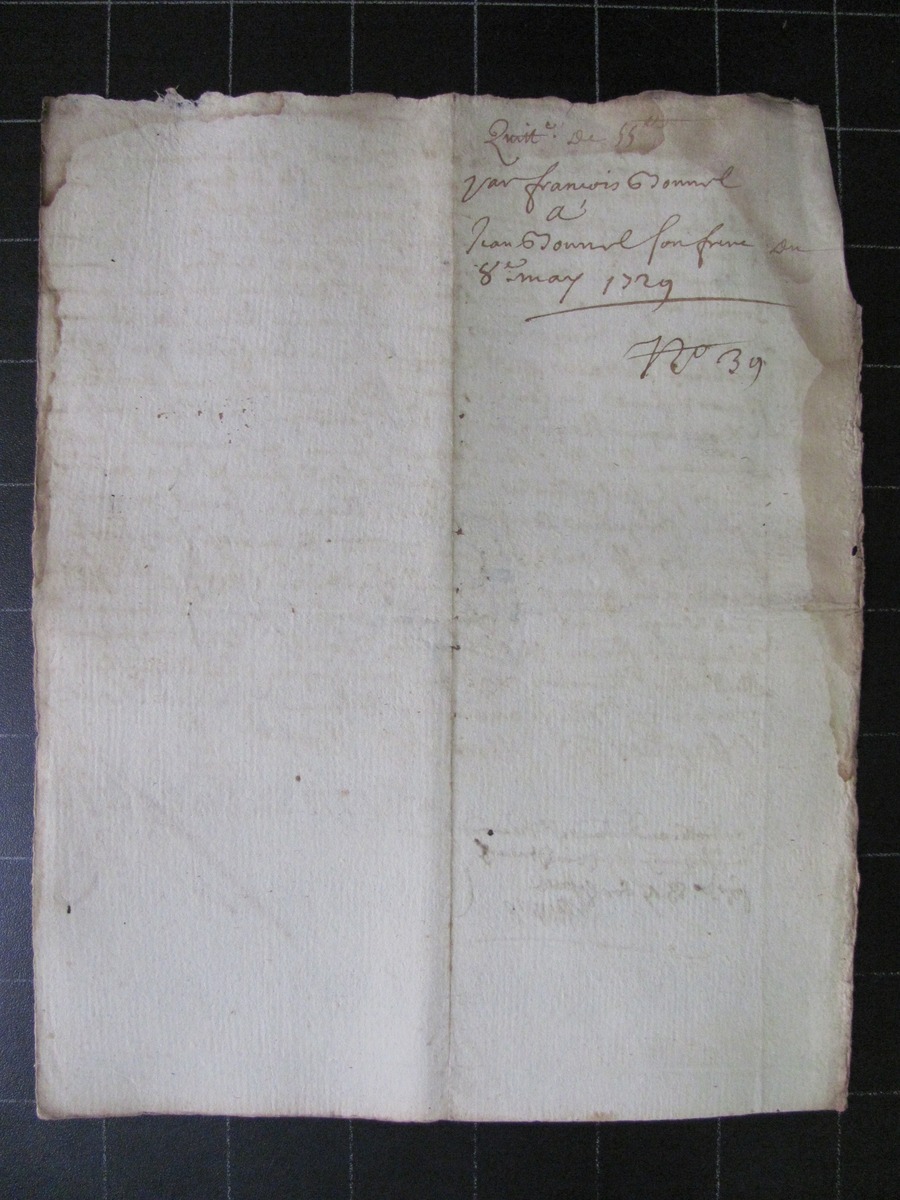 Quitt.e De 55 lt
par francois Bonnel
a
Jean Bonnel son frere du
8.e may 1729
No 39